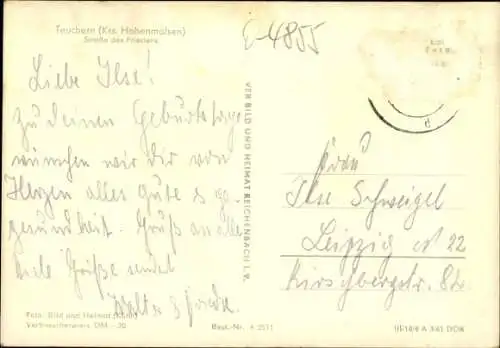 E-4855
Teuchern (Krs. Hohenmölsen)
Straße des Friedens
Liebe Ilse!
zu deinem Geburtstage
wünschen wir dir von
Herzen alles gute
gesundheit. Gruß an alle
viele Grüße sendet
Walter &
Foto: Bild und Heimat
Verbraucherpreis DM -,20
Best.-Nr.
VEB BILD UND HEIMAT REICHENBACH I. V.
Frau
Ilse Schweigel
Leipzig N 22
Kirschbergstr.
III/18/6 A 3/61 DDR